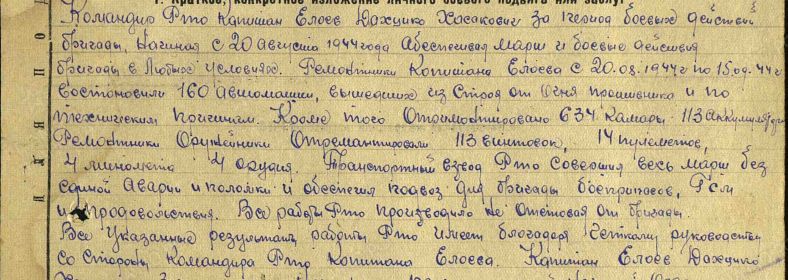 1. Краткое, конкретное изложение личного боевого подвига или заслуг
Командир Рто Капитан Елоев Дахцико Хасакович за период боевых действий
бригады, Начиная с 20 августа 1944 года Абеспечивая Марш и боевые действия
бригады в Любых условиях. Ремонтники Копитана Елоева с 20.08.1944г по 15.09.44г
Востоновили 160 Автомашин, вышедших из Строя от Огня противника и по
техническим Причинам. Кроме того Отримонтировано 634 Камары 113 Аккумулятора
Ремонтники Оружейники Отремантировали 113 винтовок, 14 пулеметов,
4 миномета 4 орудия. Транспортный взвод Рто Совершил весь Марш без
единой Аварии и поломки и обеспечил подвоз для бригады боеприпасов, Гсм
и продовольствия. Все работы Рто производило не отставая от бригады.
Все указанные результаты работы Рто имеет благодаря четкому руководству
со Стороны Командира Рто Капитана Елоева. Капитан Елоев Дахцико